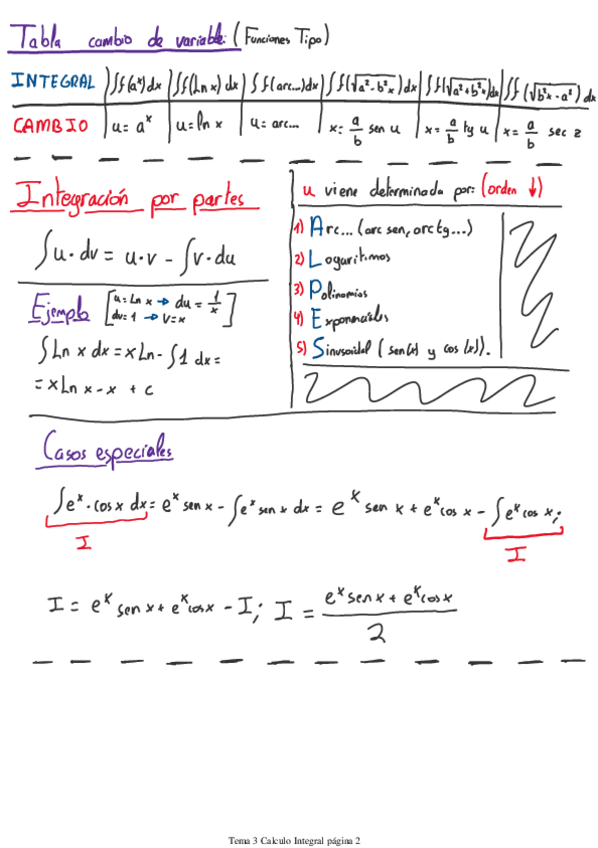 Tabla cambio de variable: (Funciones Tipo)
INTEGRAL | ∫f(aˣ)dx | ∫f(Ln x)dx | ∫f(arc...)dx | ∫f(√a²-b²x)dx | ∫f(√a²+b²x)dx | ∫f(√b²x-a²)dx
CAMBIO | u= aˣ | u=ln x | u= arc... | x= a/b sen u | x= a/b tg u | x= a/b sec z
Integración por partes
∫u·dv = u·v - ∫v·du
Ejemplo [u=Ln x → du = 1/x
dv=1 → v=x]
∫Ln x dx = x Ln - ∫1 dx =
= x Ln x - x + c
u viene determinada por: (orden ↓)
1) Arc... (arc sen, arc tg...)
2) Logaritmos
3) Polinomios
4) Exponenciales
5) Sinusoidal (sen(x) y cos(x)).
Casos especiales
∫eˣ·cos x dx = eˣ sen x - ∫eˣ sen x dx = eˣ sen x + eˣ cos x - ∫eˣ cos x;
I I
I = eˣ sen x + eˣ cos x - I; I = eˣ sen x + eˣ cos x
2
Tema 3 Calculo Integral página 2